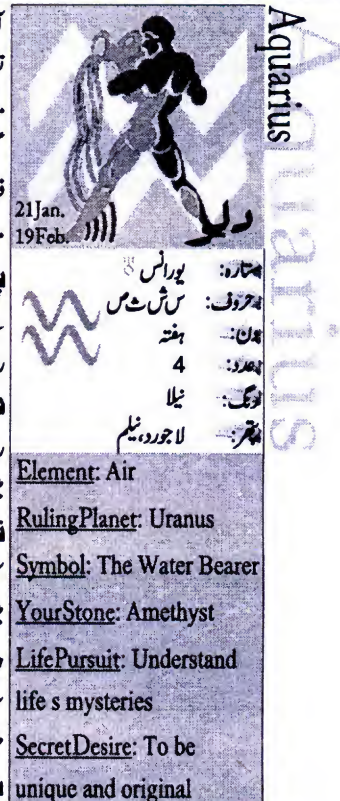 Aquarius
21Jan.
19Feb.
دلو
ستارہ: یورانس
حروف: س ش ث ص
دن: ہفتہ
عدد: 4
رنگ: نیلا
پتھر: لاجورد، نیلم
Element: Air
RulingPlanet: Uranus
Symbol: The Water Bearer
YourStone: Amethyst
LifePursuit: Understand
life s mysteries
SecretDesire: To be
unique and original